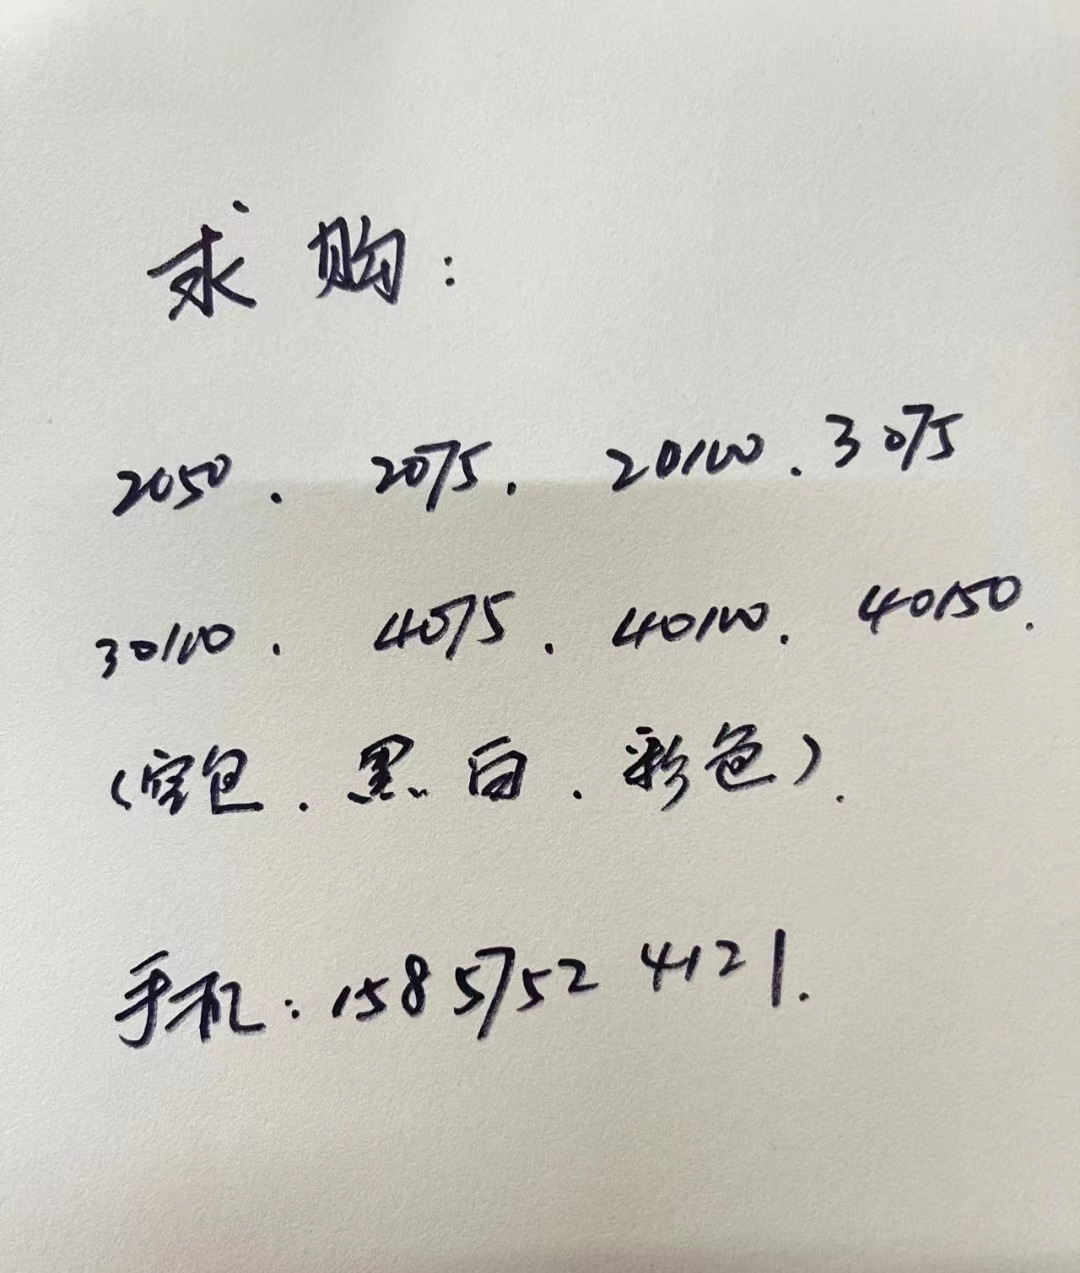 求购:
2050. 2075. 20100. 3075
30100. 4075. 40100. 40150.
(空包.黑白.彩色).
手机:15857524121.